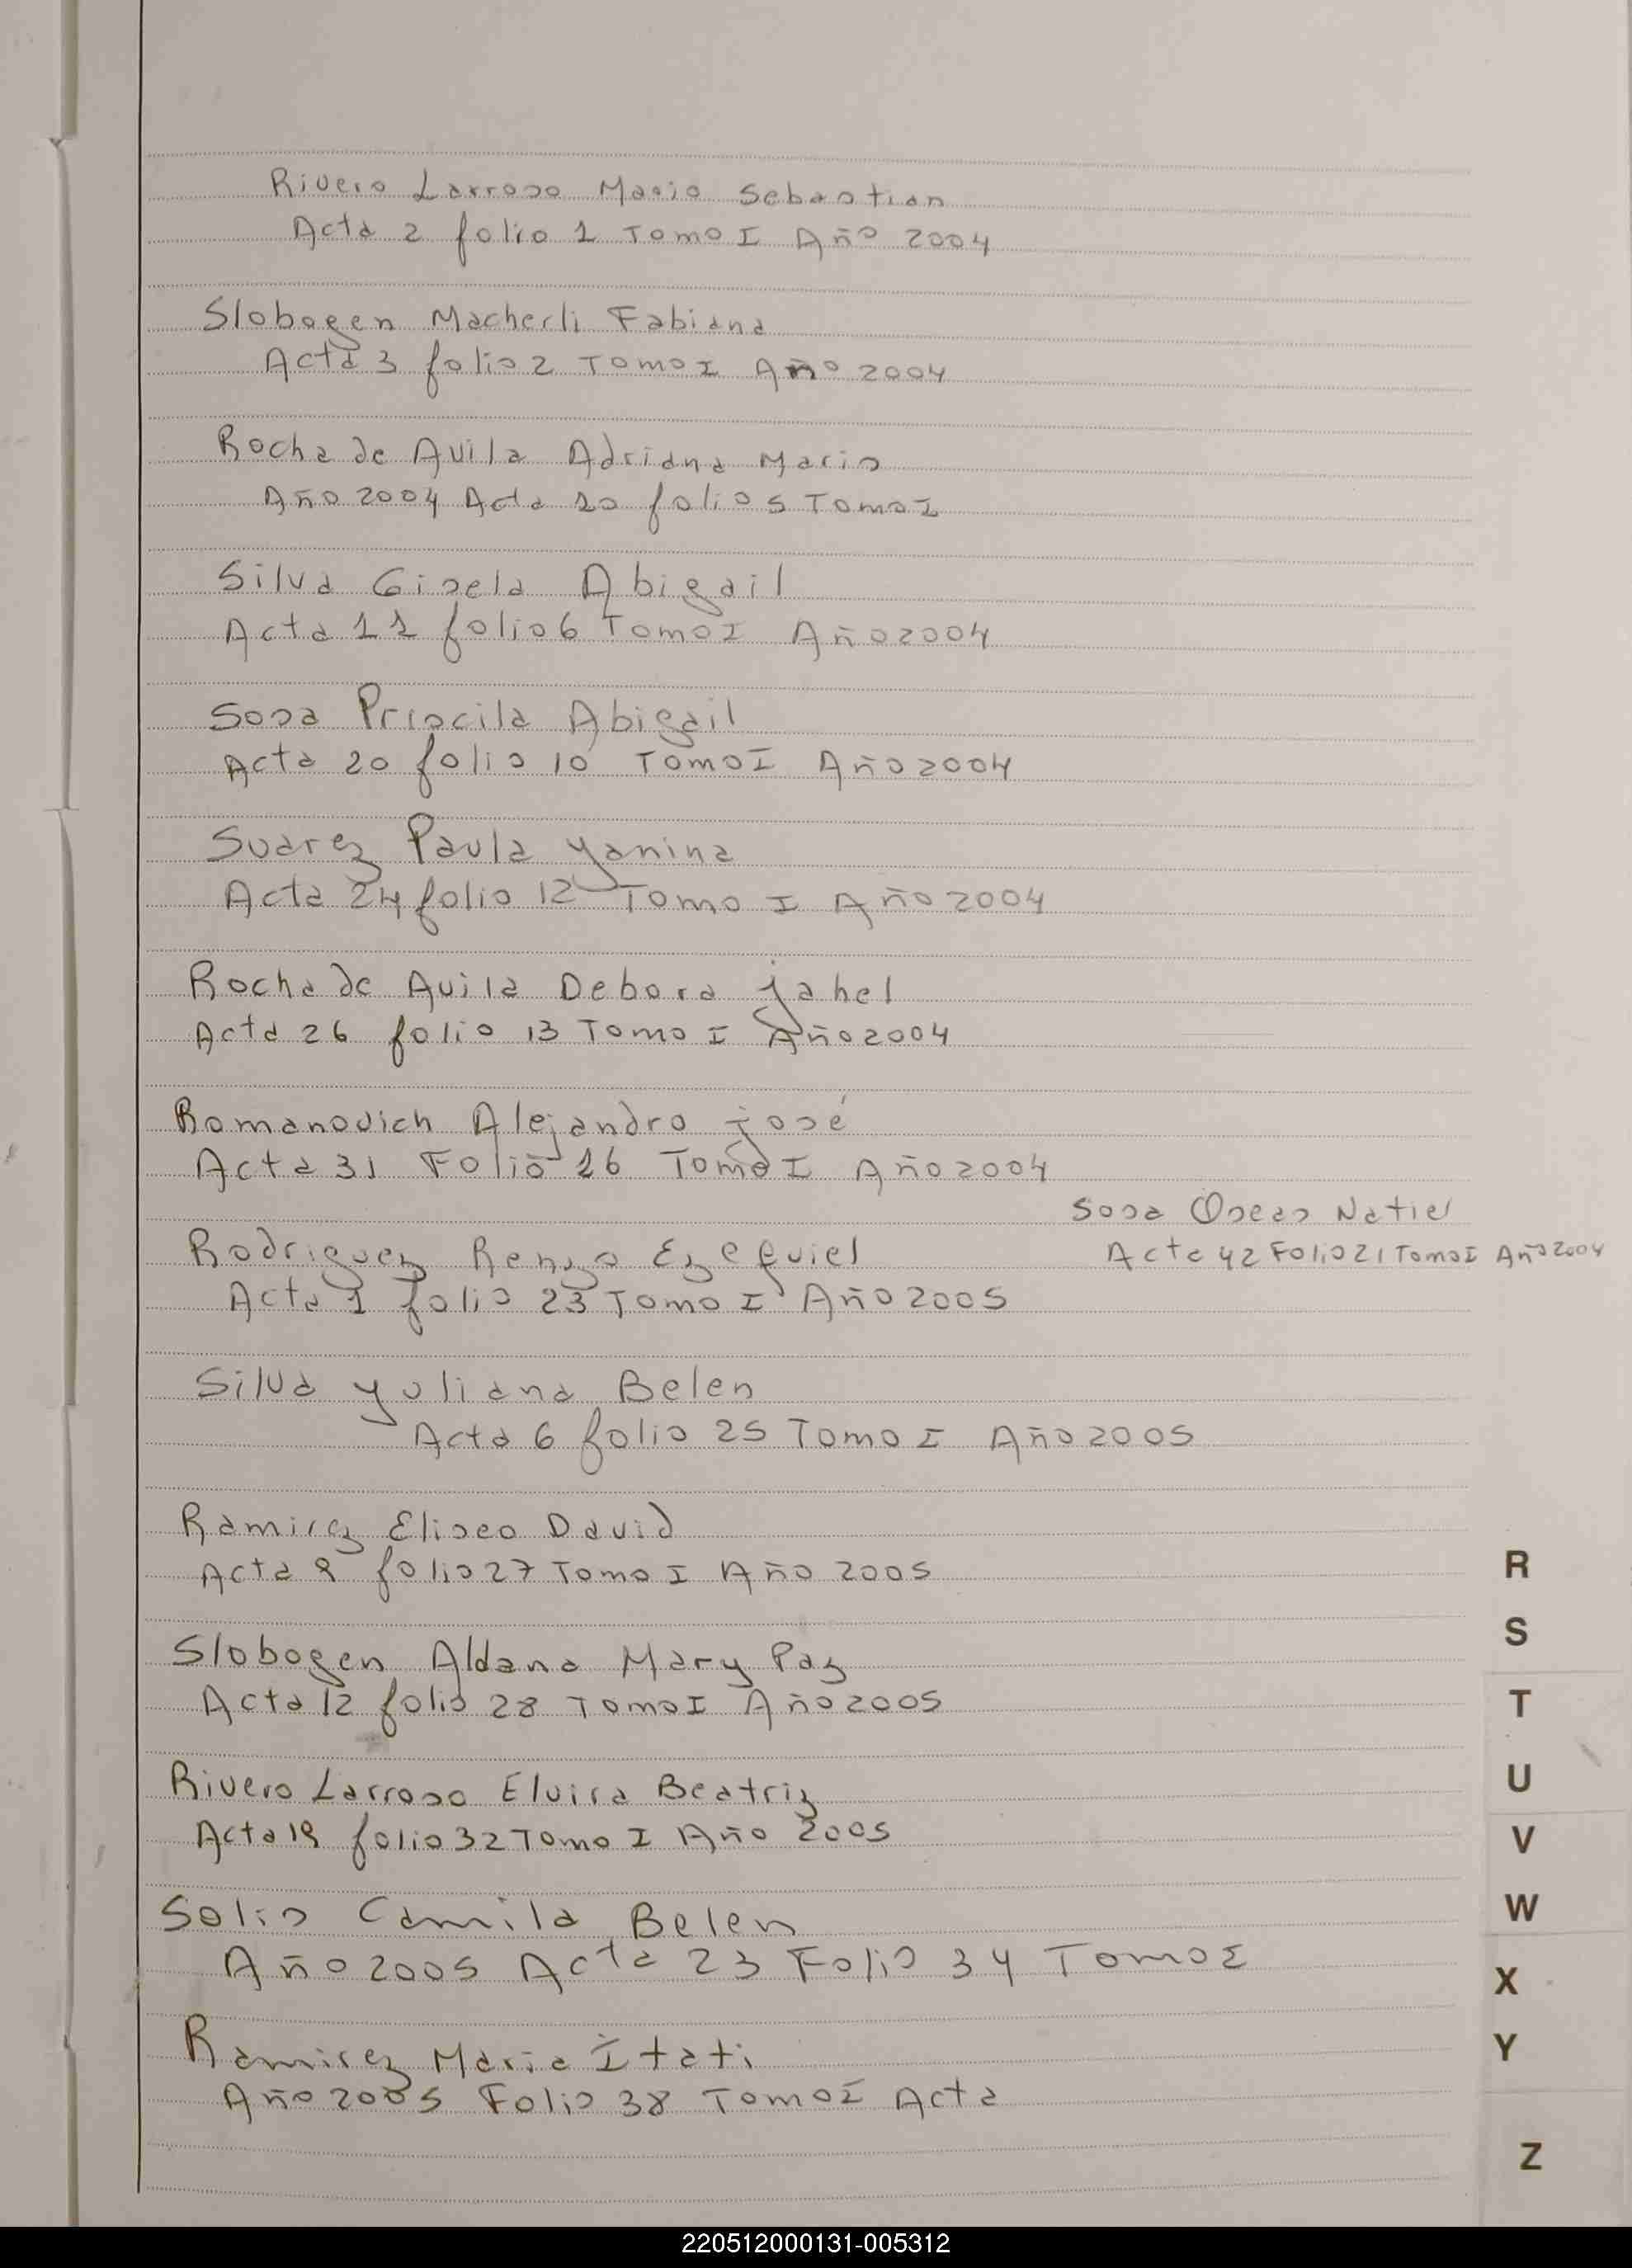 Rivero Larrosa Mario Sebastian
Acta 2 folio 1 Tomo I Año 2004
Slobogen Macherli Fabiana
Acta 3 folio 2 Tomo I Año 2004
Rocha de Avila Adriana Maria
Año 2004 Acta 10 folio 5 Tomo I
Silva Gisela Abigail
Acta 11 folio 6 Tomo I Año 2004
Sosa Priscila Abigail
Acta 20 folio 10 Tomo I Año 2004
Suarez Paula Yanina
Acta 24 folio 12 Tomo I Año 2004
Rocha de Avila Debora jahel
Acta 26 folio 13 Tomo I Año 2004
Romanovich Alejandro josé
Acta 31 Folio 16 Tomo I Año 2004
Sosa Oseas Natiel
Acta 42 Folio 21 Tomo I Año 2004
Rodriguez Renzo Ezequiel
Acta 1 folio 23 Tomo I Año 2005
Silva Yuliana Belen
Acta 6 folio 25 Tomo I Año 2005
Ramirez Eliseo David
Acta 9 folio 27 Tomo I Año 2005
Slobogen Aldana Mary Paz
Acta 12 folio 28 Tomo I Año 2005
Rivero Larrosa Elvira Beatriz
Acta 19 folio 32 Tomo I Año 2005
Solis Camila Belen
Año 2005 Acta 23 Folio 34 Tomo I
Ramirez Maria Itati
Año 2005 Folio 38 Tomo I Acta
R
S
T
U
V
W
X
Y
Z
220512000131-005312